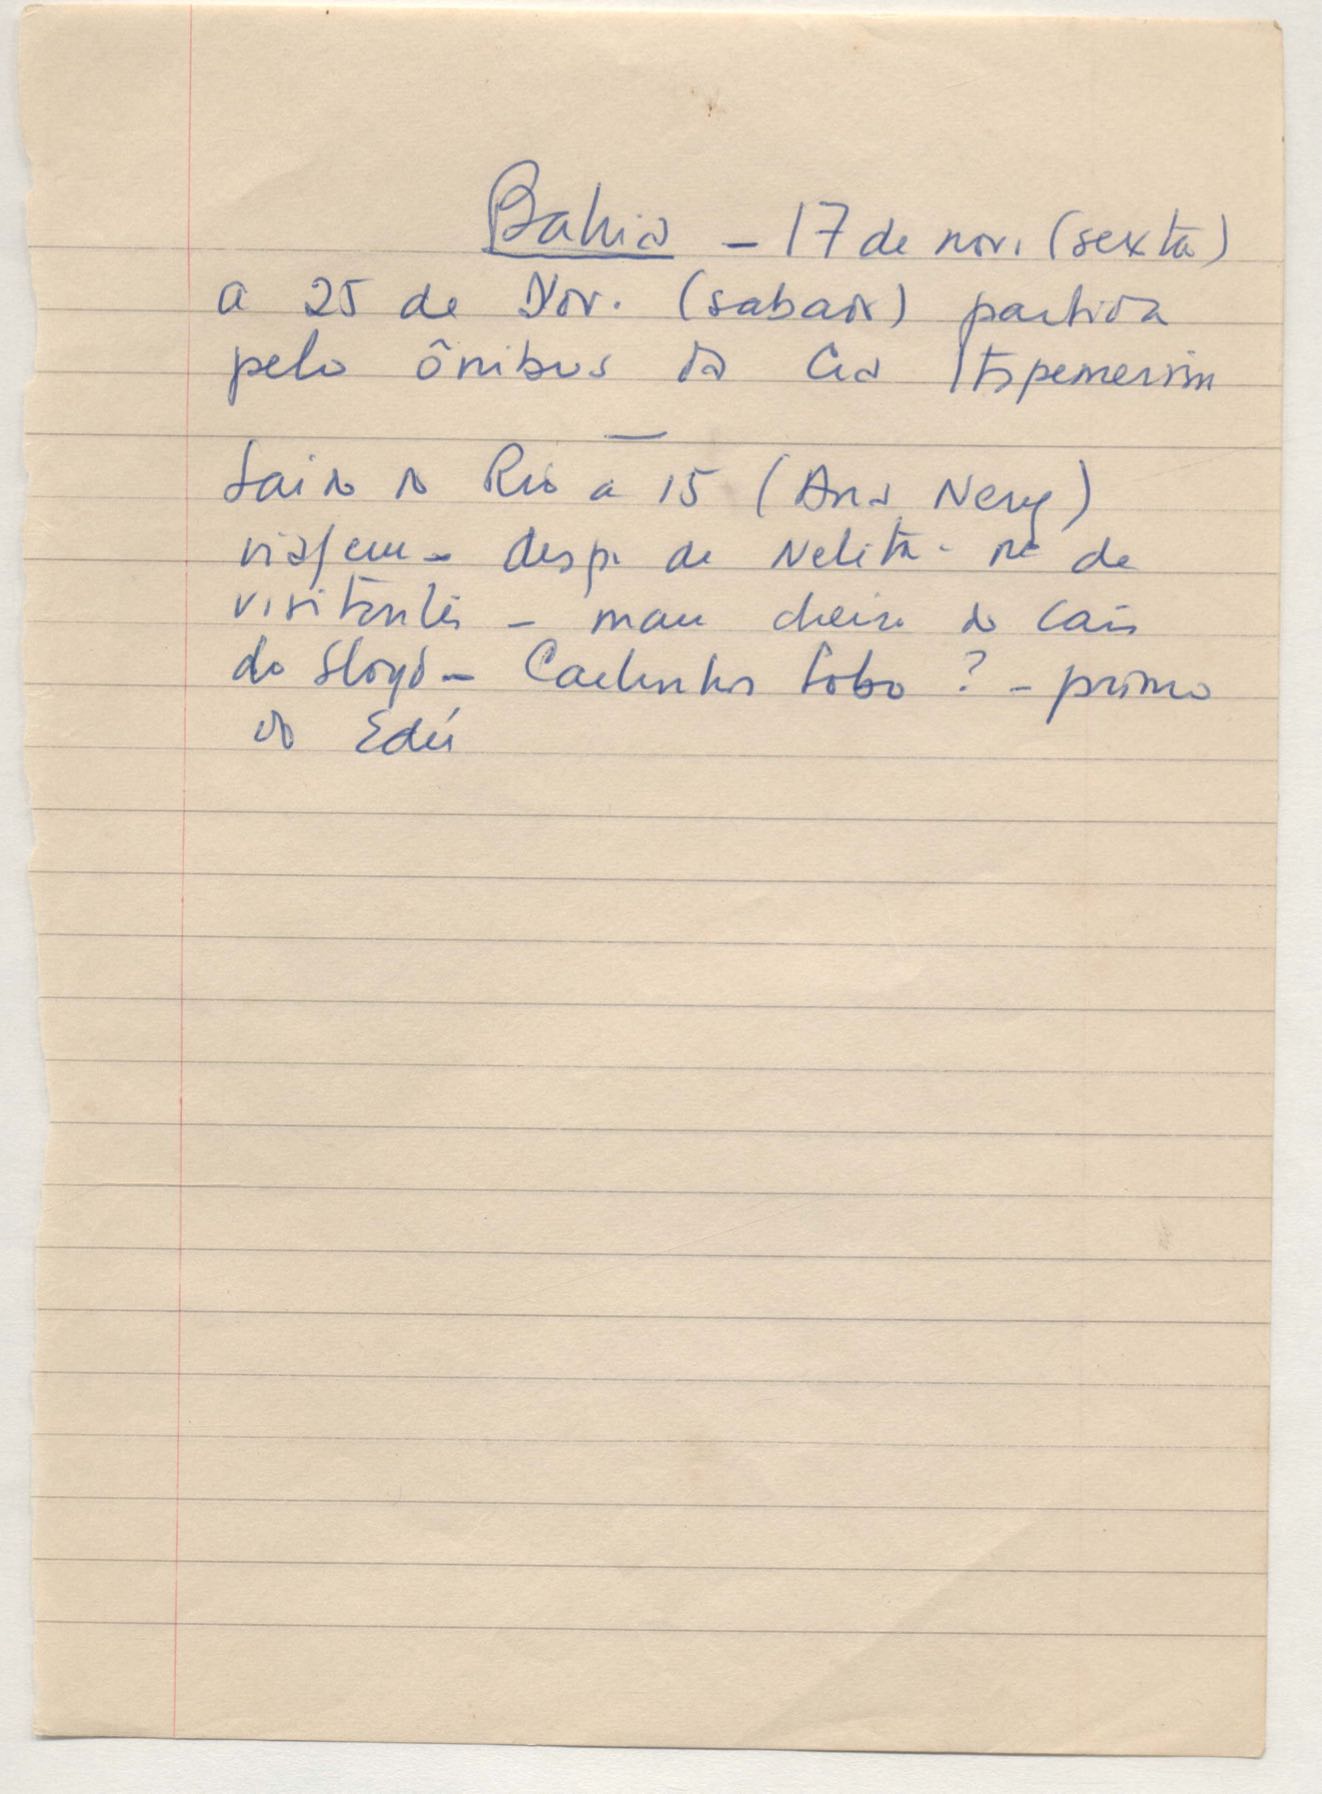 Bahia - 17 de nov. (sexta)
a 25 de Nov. (sabado) partida
pelo ônibus da Cia Itapemerim
Saida do Rio a 15 (Ana Nery)
viagem - desp. de Nelita - nº de
visitantes - mau cheiro do cais
do Lloyd - Carlinhos Lobo ? - primo
do Edú